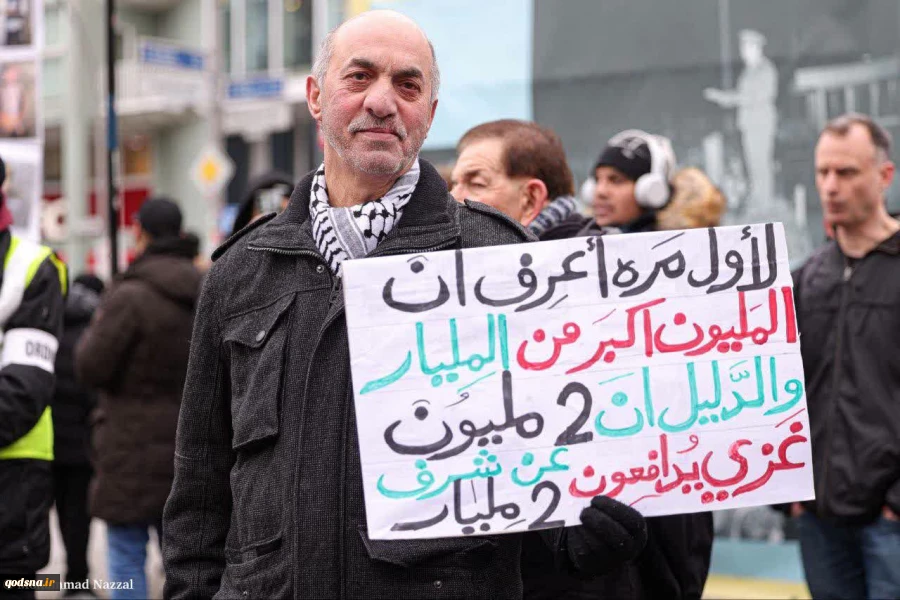 لأول مره أعرف ان
المليون اكبر من المليار
والدليل ان 2 مليون
غزي يدافعون عن شرف
2 مليار
qodsna.ir
Nazzal